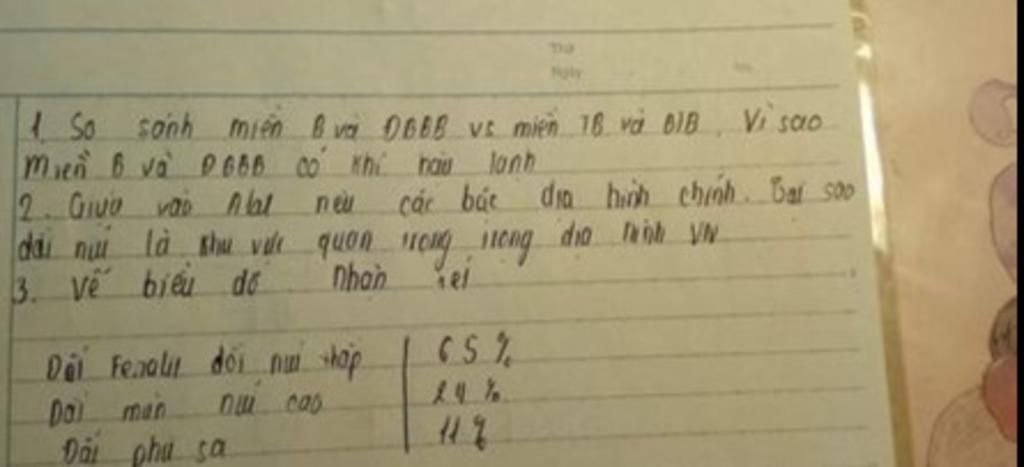 Thứ
Ngày
1. So sánh miền B và ĐBBB vs miền TB và BTB. Vì sao
Miền B và ĐBBB có khí hậu lạnh
2. Giựa vào Alat nêu các bậc địa hình chính. Tại sao
đồi núi là khu vực quan trọng trong địa hình VN
3. Vẽ biểu đồ nhận xét
Đất Feralit đồi núi thấp 65%
Đất mùn núi cao 24%
Đất phù sa 11%